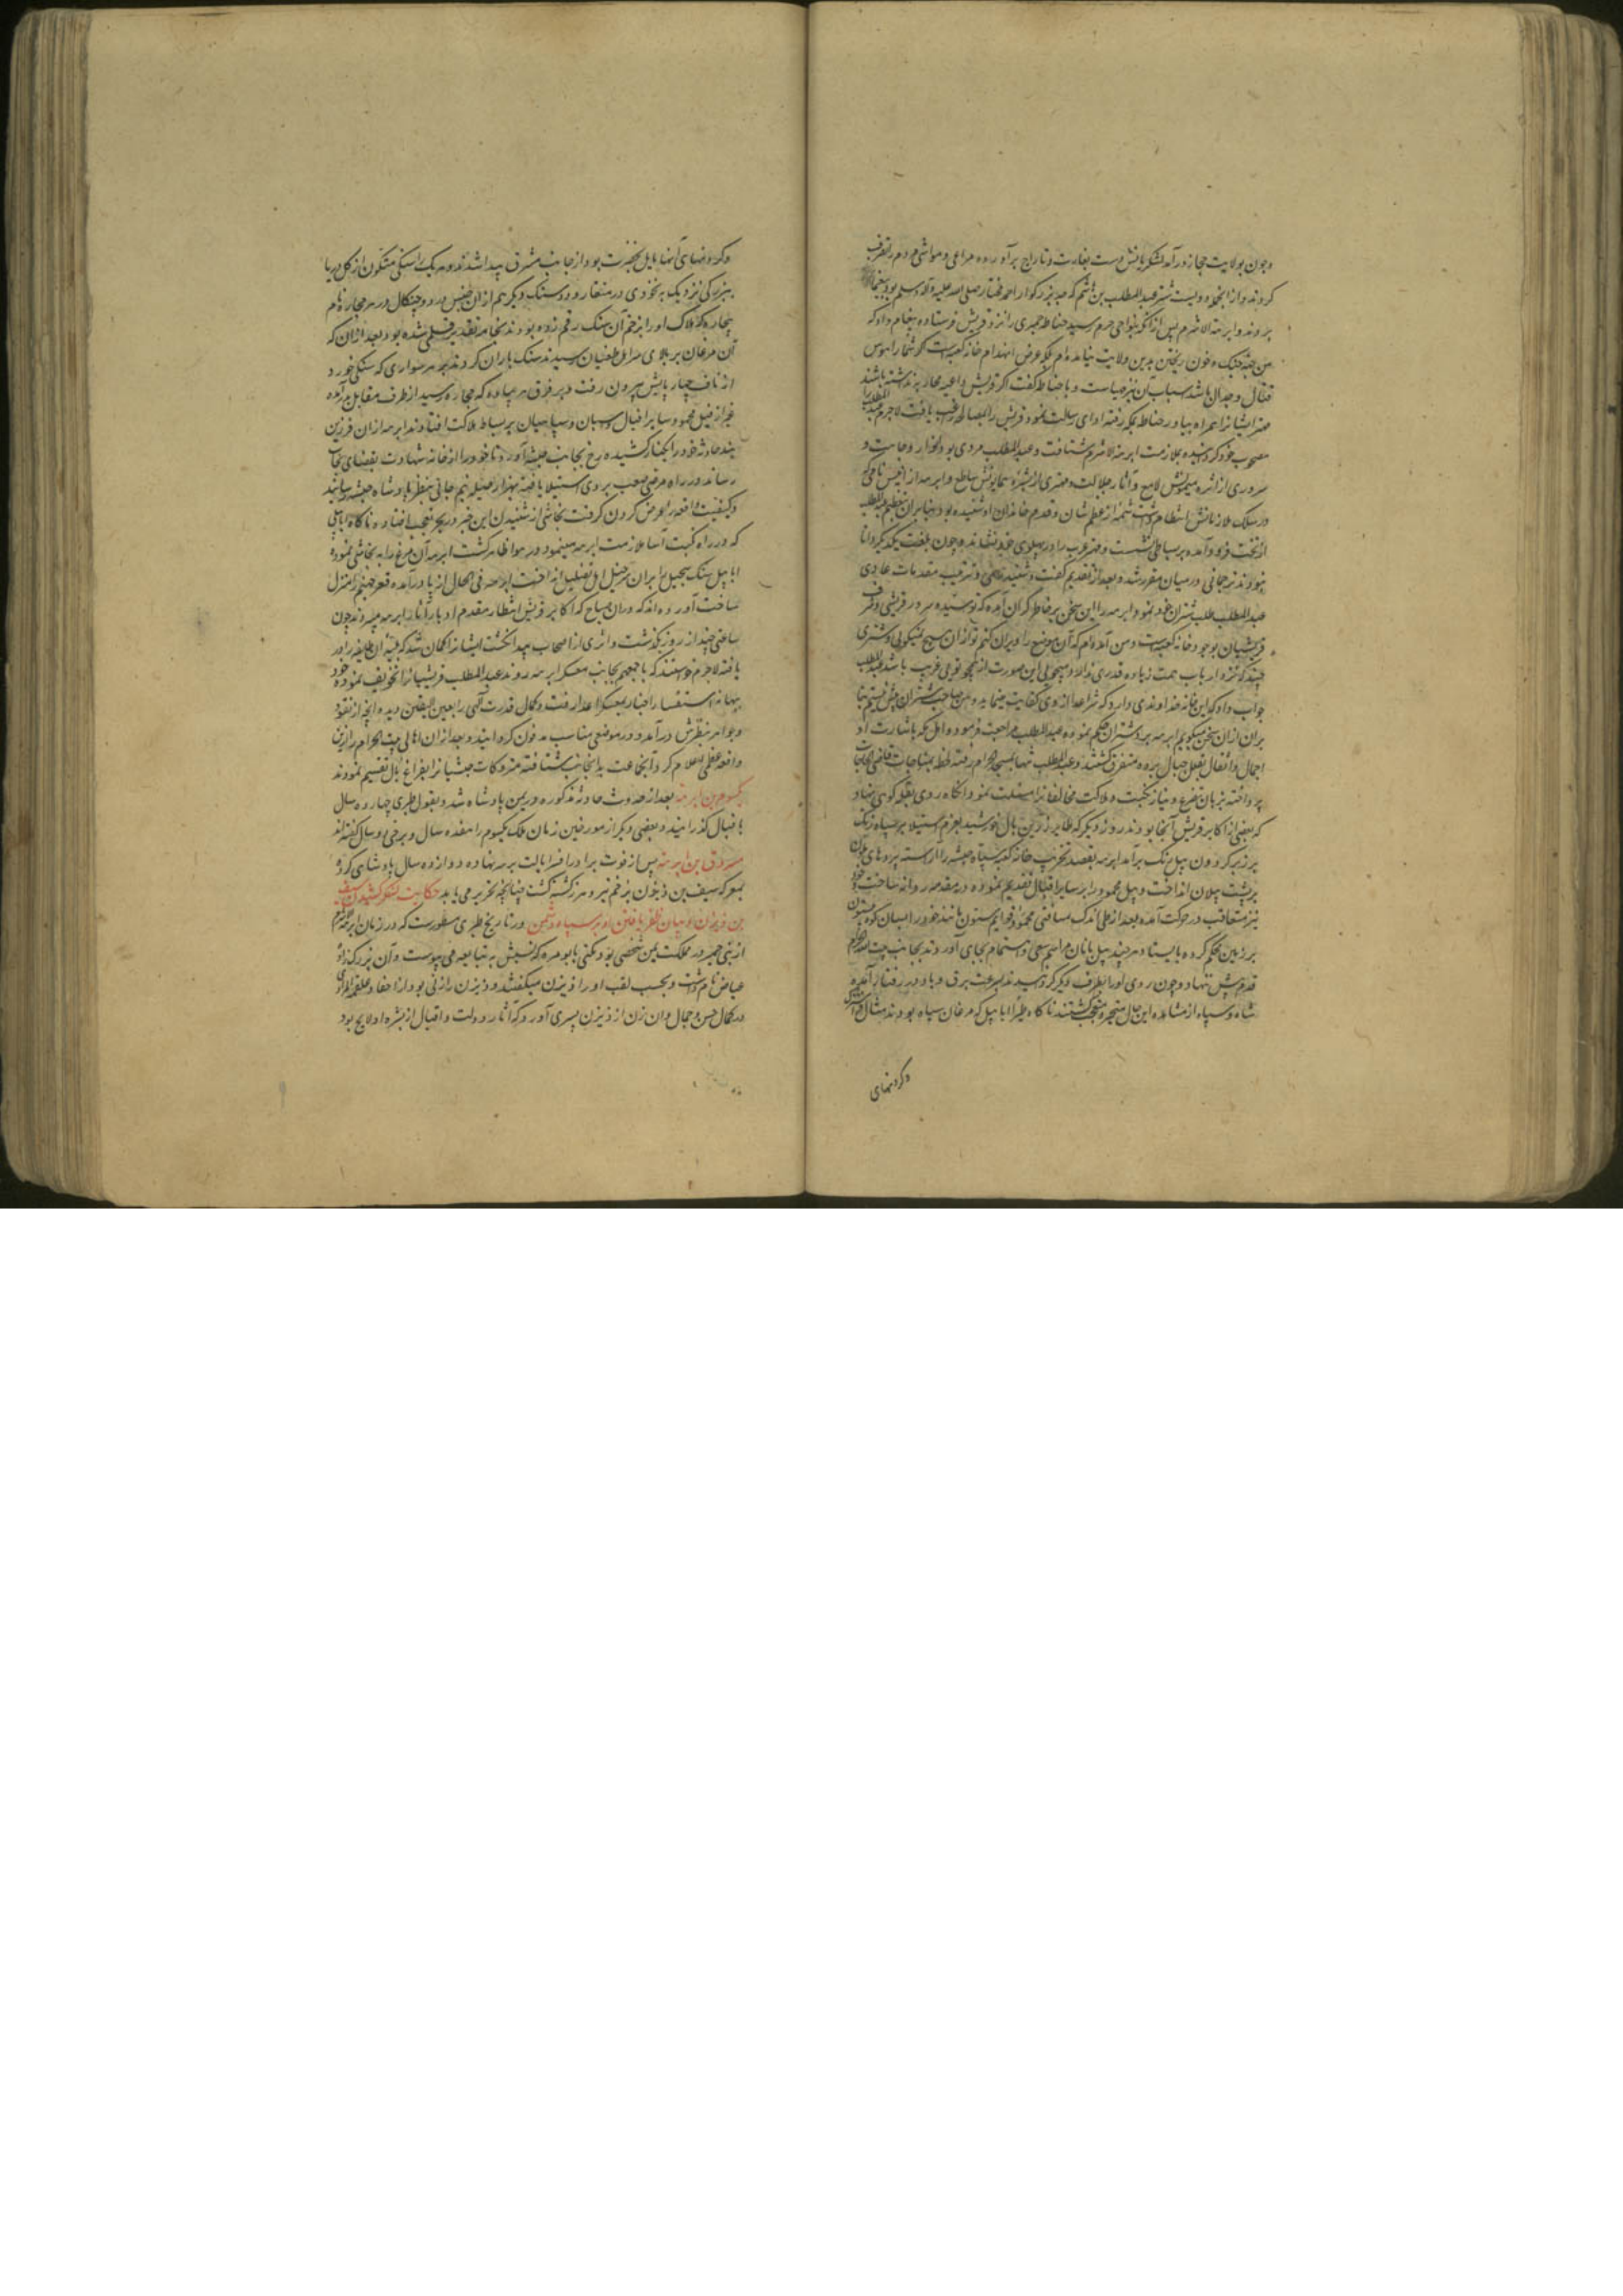 وچون بولایت حجاز درآمد لشکریانش دست بغارت و تاراج برآورده مراعی و مواشی مردم را تصرف
کردند و از انجمله دویست شتر عبدالمطلب بن هاشم که جد بزرگوار احمد مختار صلی الله علیه و آله وسلم بود
بردند و ابرهة الاشرم پس از آنکه بنواحی حرم رسید حناطه حمیری را نزد قریش فرستاده پیغام داد که
من بجهة جنگ و خون ریختن بدین ولایت نیامده‌ام بلکه غرض انهدام خانه کعبه است اگر شما را هوس
قتال و جدال باشد اسباب آن نیز مهیاست و با حناطه گفت اگر قریش داعیه محاربه نداشته باشند
مهتر ایشانرا همراه بیاور حناطه بمکه رفته ادای رسالت نمود و قریش را بمصالحه راغب یافت لاجرم عبدالمطلب را
مصحوب خود گردانیده بملازمت ابرهة الاشرم شتافت و عبدالمطلب مردی بود بزرگوار و مهابت و
سروری از ناصیه میمونش لامع و آثار جلالت و مهتری از بشره همایونش ساطع و ابرهه از انیس نامی که
در سلک ملازمانش انتظام داشت شمه از عظم شان و قدم خاندان او شنیده بود بنابران بتعظیم عبدالمطلب
از تخت فرود آمده بر بساطی نشست و مهتر عرب را در پهلوی خود نشاند و چون بلغت یکدیگر دانا
نبودند ترجمانی در میان مقرر شد و بعد از تقدیم گفت و شنید رسمی و ترتیب مقدمات عادی
عبدالمطلب طلب شتران خود نمود و ابرهه را این سخن بر خاطر گران آمده که تو سید و سرور قریشی و شرف
قریشیان بوجود خانه کعبه است و من آمده‌ام که آن موضع را ویران کنم تو ازان هیچ نمیگویی و شتری
چند که نزد ارباب همت زیاده قدری ندارد میجویی این صورت از همچو تویی غریب باشد عبدالمطلب
جواب داد که این خانه خداوندی دارد که شر اعدا از وی کفایت مینماید و من صاحب شتران بیش نیستم بنا
بران ازان سخن میگویم ابرهه برد شتران حکم نموده عبدالمطلب مراجعت فرمود و اهل مکه باشارت او
احمال و اثقال بقلل جبال برده متفرق گشتند و عبدالمطلب تنها بمسجد الحرام رفته لحظه بمناجات قاضی الحاجات
پرداخته بزبان تضرع و نیاز نکبت و هلاکت مخالفانرا مسئلت نمود آنگاه روی بقله کوهی نهاد
که بعضی از اکابر قریش آنجا بودند روز دیگر که طایر زرین بال خورشید بعزم استیلا بر سپاه زنگ
بر زبر گردون پیل رنگ برآمد ابرهه بقصد تخریب خانه کعبه سپاه حبشه را آراسته بردهای یمانی
بر پشت پیلان انداخت و پیل محمود را بر سایر افیال تقدیم نموده در مقدمه روانه ساخت و خود
نیز متعاقب در حرکت آمده بعد از طی اندک مسافتی محمود قوایم ستون مانند خود را بسان کوه بیستون
بر زمین محکم کرده بایستاد هر چند پیل بانان مراسم سعی و اهتمام بجای آوردند بجانب بیت الله الحرام
قدم پیش ننهاد و چون روی او را بطرف دیگر گردانیدند بسرعت برق و باد در رفتار آمد
شاه و سپاه از مشاهده این حال متحیر و متعجب گشتند ناگاه طیرا ابابیل که مرغان سیاه بودند مثال
وگردنهای
وگردنهای آنها مایل بخضرت بود از جانب مشرق پیدا شدند و هر یک را سنگی متکون از گل دریا
ببزرگی نزدیک به نخودی در منقار و دو سنگ دیگر هم ازان جنس در دو چنگال و در هر حجاره نام
بیچاره که هلاک او را بزخم آن سنگ رقم زده بودند بخامه تقدیر قلمی شده بود بعد ازان که
آن مرغان بر بالای سر اهل طغیان رسیدند سنگ باران کردند بر هر سواری که سنگی خورد
از ناف چارپایش بیرون رفت و بر فرق هر پیاده که حجاره رسید از طرف مقابل برآمد
غیر از فیل محمود سایر افیال و اسبان و سپاهیان بر بساط هلاکت افتادند ابرهه ازان فرزین
بند حادثه خود را بکنار کشیده رخ بجانب حبشه آورد تا خود را از خانه شهادت بفضای نجات
رساند در راه مرضی صعب بر وی استیلا یافته بهزار حیله نیم جانی بنظر پادشاه حبشه رسانید
و کیفیت واقعه را عرض کردن گرفت نجاشی از شنیدن این خبر در بحر تعجب افتاده ناگاه ابابیلی
که در راه نکبت آسا ملازمت ابرهه مینمود در هوا ظاهر گشت ابرهه آن مرغ را به نجاشی نموده
ابابیل سنگ سجیل را بران سرخیل اهل تضلیل انداخت ابرهه فی الحال از پا درآمده قعر جهنم را منزل
ساخت آورده‌اند که دران صباح که اکابر قریش انتظار مقدم ادبار آثار ابرهه میبردند چون
ساعتی چند از روز گذشت و اثری از اصحاب پیدا نگشت ایشانرا گمان شد که فتنه آن طایفه را در
یافته لاجرم خواستند که باجمعهم بجانب معسکر ابرهه روند عبدالمطلب قریشیانرا تخویف نموده خود
ببهانه استفسار اخبار بمعسکر اعدا رفت و کمال قدرت الهی را بعین الیقین دیده آنچه از نقود
و جواهر بنظرش درآمد در موضعی مناسب مدفون گردانید و بعد ازان اهالی بیت الحرام را ازین
واقعه عظمی اعلام کرد تا بجماعت بدانجانب شتافته متروکات حبشیانرا بفراغ بال تقسیم نمودند
یکسوم بن ابرهه بعد از حدوث حادثه مذکوره در یمن پادشاه شد و بقول طبری چهارده سال
باقبال گذرانید و بعضی دیگر از مورخین زمان ملک یکسوم را هفده سال و برخی دو سال گفته‌اند
مسروق بن ابرهه پس از فوت برادر افسر ایالت بر سر نهاده دوازده سال پادشاهی کرد
بمعرکه سیف بن ذی یزن بزخم تیر و هرز کشته گشت چنانچه تحریر می یابد حکایت لشکر کشیدن سیف
بن ذی یزن و بیان ظفر یافتن او بر سپاه دشمن در تاریخ طبری مسطورست که در زمان ابرهة الاشرم
از بنی حمیر در مملکت یمن شخصی بود مکنی بابو مره که نسبش به تبابعه می پیوست و آن بزرگ زاده
عیاض نام داشت و بحسب لقب او را ذی یزن میگفتند و ذی یزن را زنی بود از احفاد علقمه
در کمال حسن و جمال و ان زن از ذی یزن پسری آورد که آثار دولت و اقبال از بشره او لایح بود